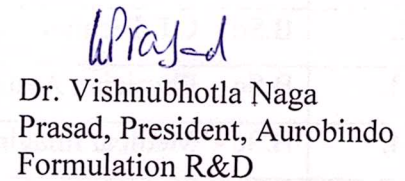 Prasad
Dr. Vishnubhotla Naga
Prasad, President, Aurobindo
Formulation R&D